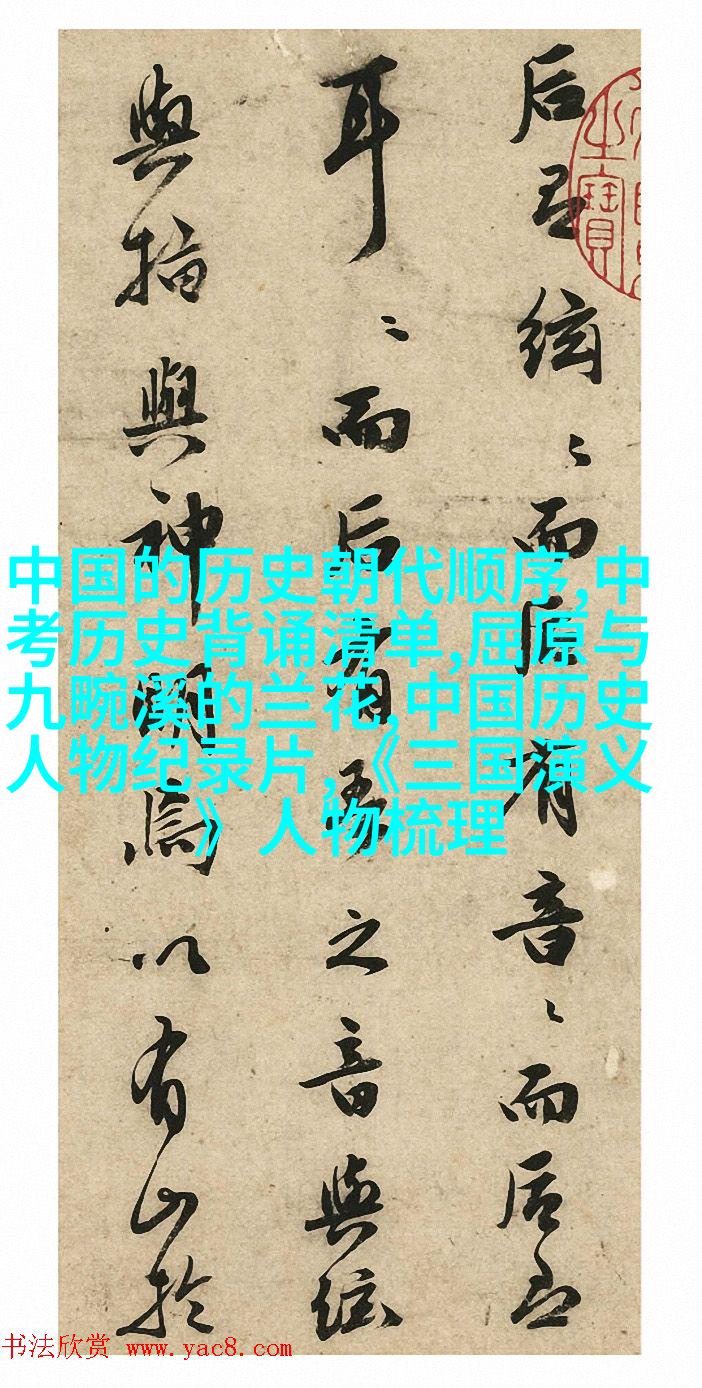 后絃〻而后有音〻而后
耳〻而后有之音與絃
與指與神焉以有山於
之寶
中国的历史朝代顺序,中
考历史背诵清单,屈原与
九畹溪的兰花,中国历史
人物纪录片,《三国演义
》人物梳理
书法欣赏 www.yac8.com